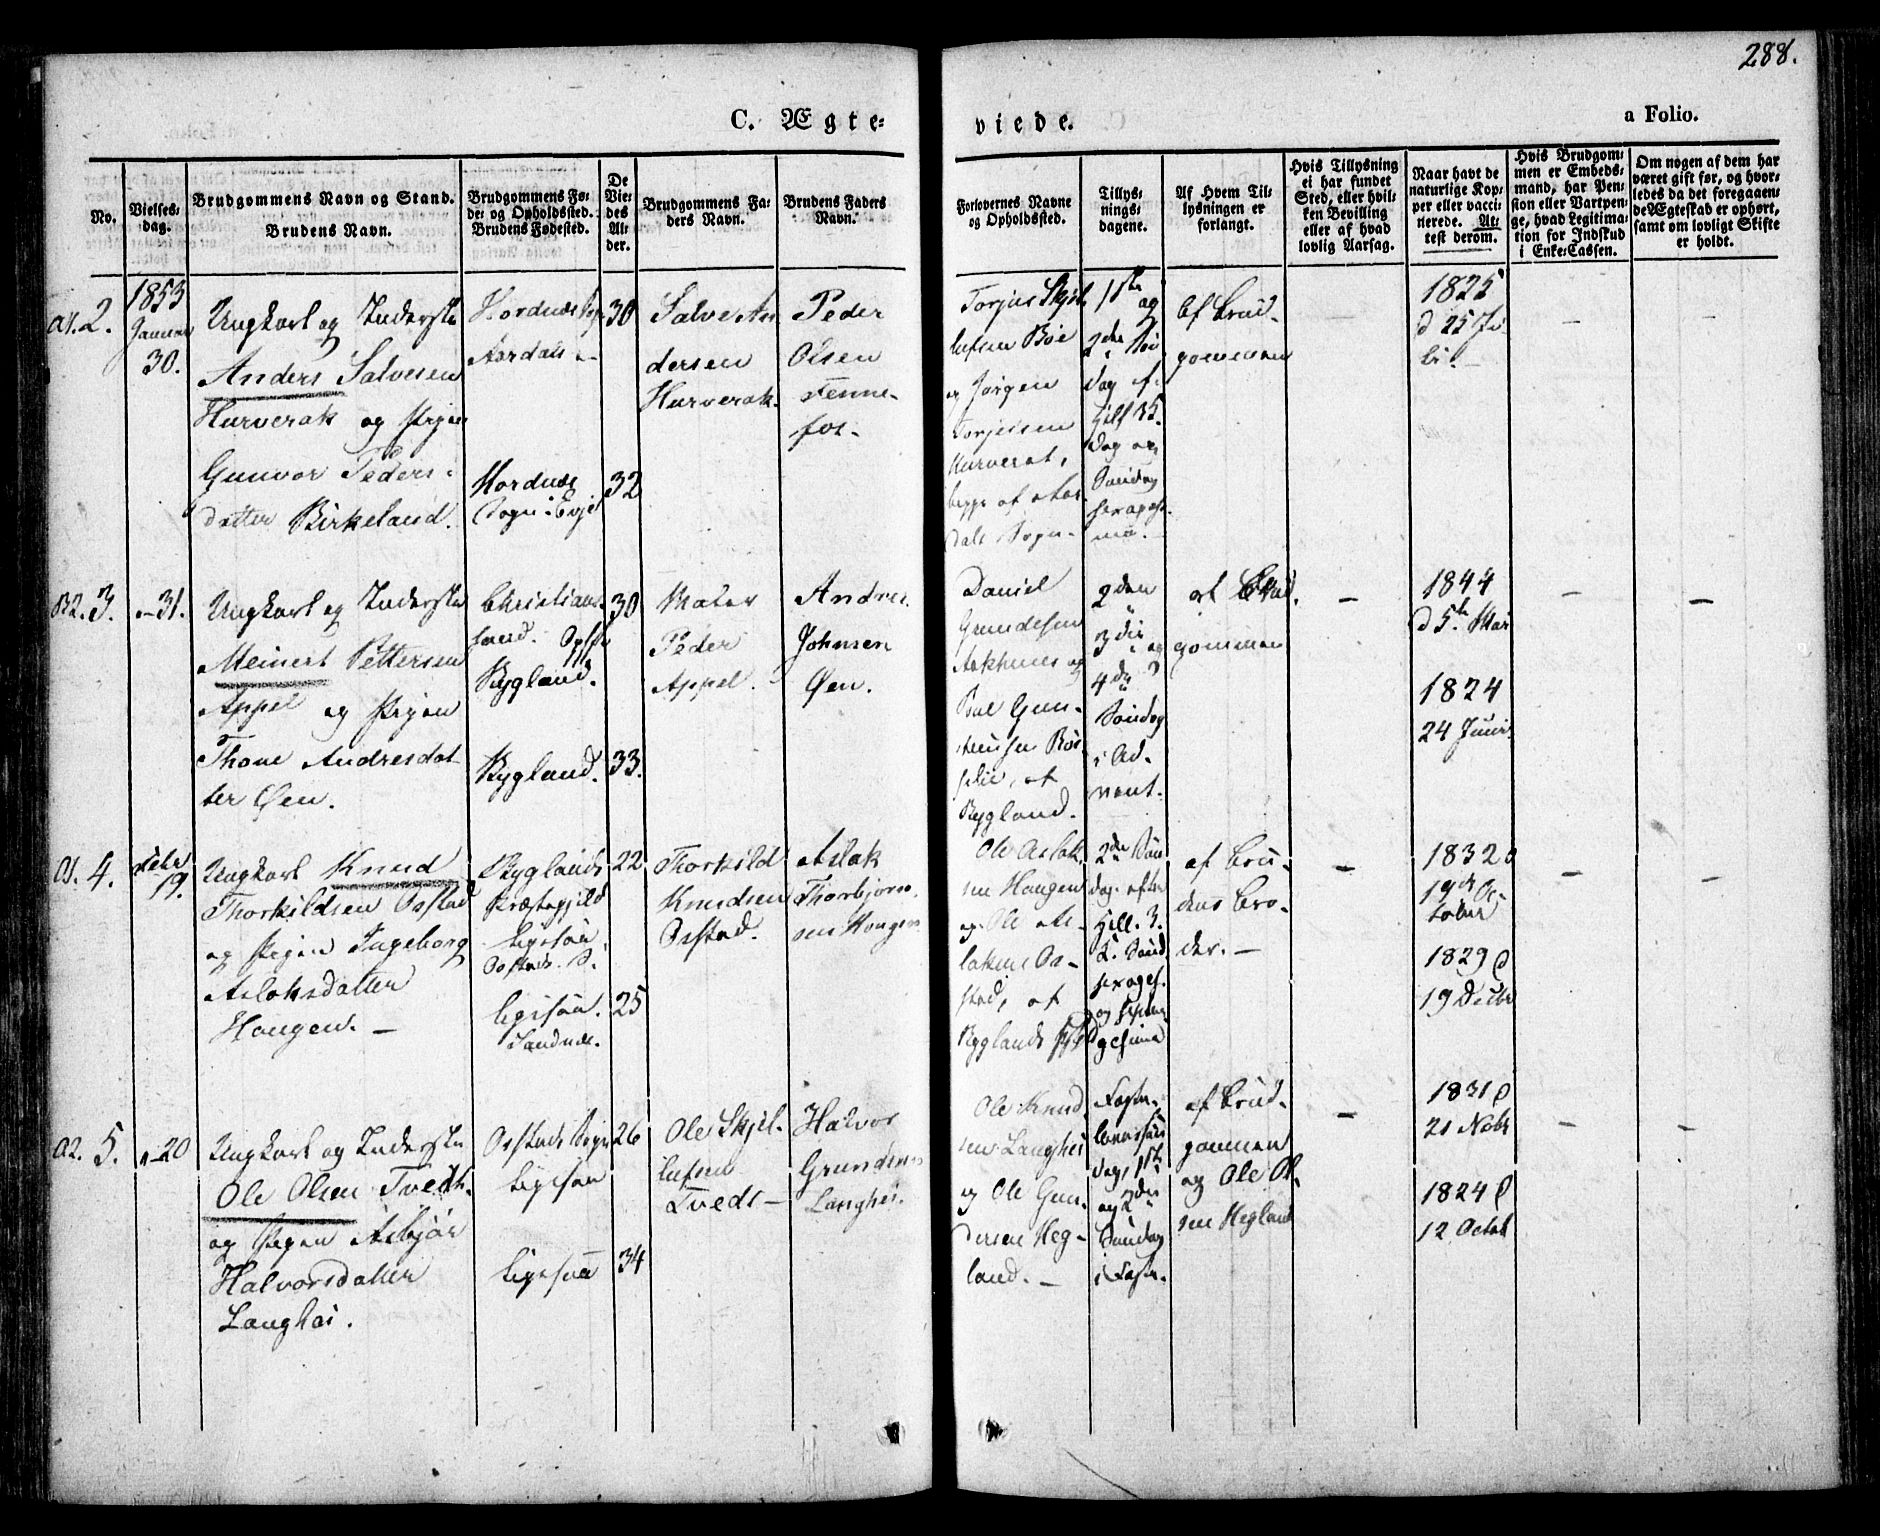 288.
C. Ægte-
viede.
a Folio.
No.
Vielses-
dag.
Brudgommens Navn og Stand.
Brudens Navn.
Brudgommens Fø-
de- og Opholdssted.
Brudens Fødested.
De
Vie-
des
Al-
der.
Brudgommens Fa-
ders Navn.
Brudens Faders
Navn.
Forlovernes Navne
og Opholdssted.
Tillys-
nings-
dagene.
Af Hvem Til-
lysningen er
forlangt.
Hvis Tillysning
ei har fundet
Sted, eller hvil-
ken Bevilling
eller af hvad
lovlig Aarsag.
Naar havt de
naturlige Kop-
per eller vacci-
nerede. At-
test derom.
Hvis Brudgom-
men er Embeds-
mand, har Pen-
sion eller Vartpen-
ge, hvad Legitima-
tion for Indskud
i Enke-Cassen.
Om nogen af dem har
været gift før, og hvor-
ledes da det foregaaen-
de Ægteskab er ophørt,
samt om lovligt Skifte
er holdt.
2.
1853
Januar
30.
Ungkarl og Inderste
Anders Salvesen
Hurverak og Pigen
Gunvor Peders-
datter Birkeland.
Hordnæs
Aardals
Hordnæs
Sogn i Evje
30
32
Salve An
dersen
Hurverak.
Peder
Olsen
Fenne-
fos-
Torjus Skjel
lufsen Bøe
og Jørgen
Torjussen
Hurverak,
begge af Aar
dals Sogn-
1ste og
2den Søn
dag
Dag og
Søndag
af Brud-
gommen
1825
d 25 Ju
li.
3.
-31.
Ungkarl og Inderste
Meinert Pettersen
Appel og Pigen
Thone Andresdat
ter Øen.
Christians
sand.
Bygland.
Bygland.
30
33.
Peder
Appel.
Andres
Johnsen
Øen.
Daniel
Gundesen
og
Gun-
af
Bygland.
2den
3die og
4de
Søndag
i Ad-
vent.
af Brud.
gommen
1844
d 5te Mar
1824
24 Juni
4.
19.
Ungkarl Knud
Thorkildsen Ostad
og Pigen Ingeborg
Aslaksdatter
Haugen. -
Byglands
Præstegjeld
ligesaa
ligesaa.
Sandnæs.
22
25
Thorkild
Knudsen
Ostad.
Aslak
Thorbjørn-
sen Haugen
Ole Aslak
sen Haugen
og Ole As-
laksen Os-
stad, af
Byglands
2den Søn
dag efter
Hell. 3.
K. Sønd
sexages.
og septua
gesima
af Bru-
dens Bro-
der. -
1832
19de Oc-
tober
1829
19 Decbr
5.
-20
Ungkarl og Inderste
Ole Olsen Tvedt.
og Pigen Asbjør
Halvorsdatter
Langhei.
Ostads Sogn
ligesaa
ligesaa
26
34
Ole Skjel-
lufsen
Tvedt -
Halvor
Grundesen
Langhei.
Ole Knud
sen Langhei
og Ole Gun-
dersen Heg-
land. -
Faste-
dag, 1ste
og 2den
Søndag
i Faste.
af Brud-
gommen
og Ole Ol-
sen Hegland
1831
21 Nobr
1824
12 Octob